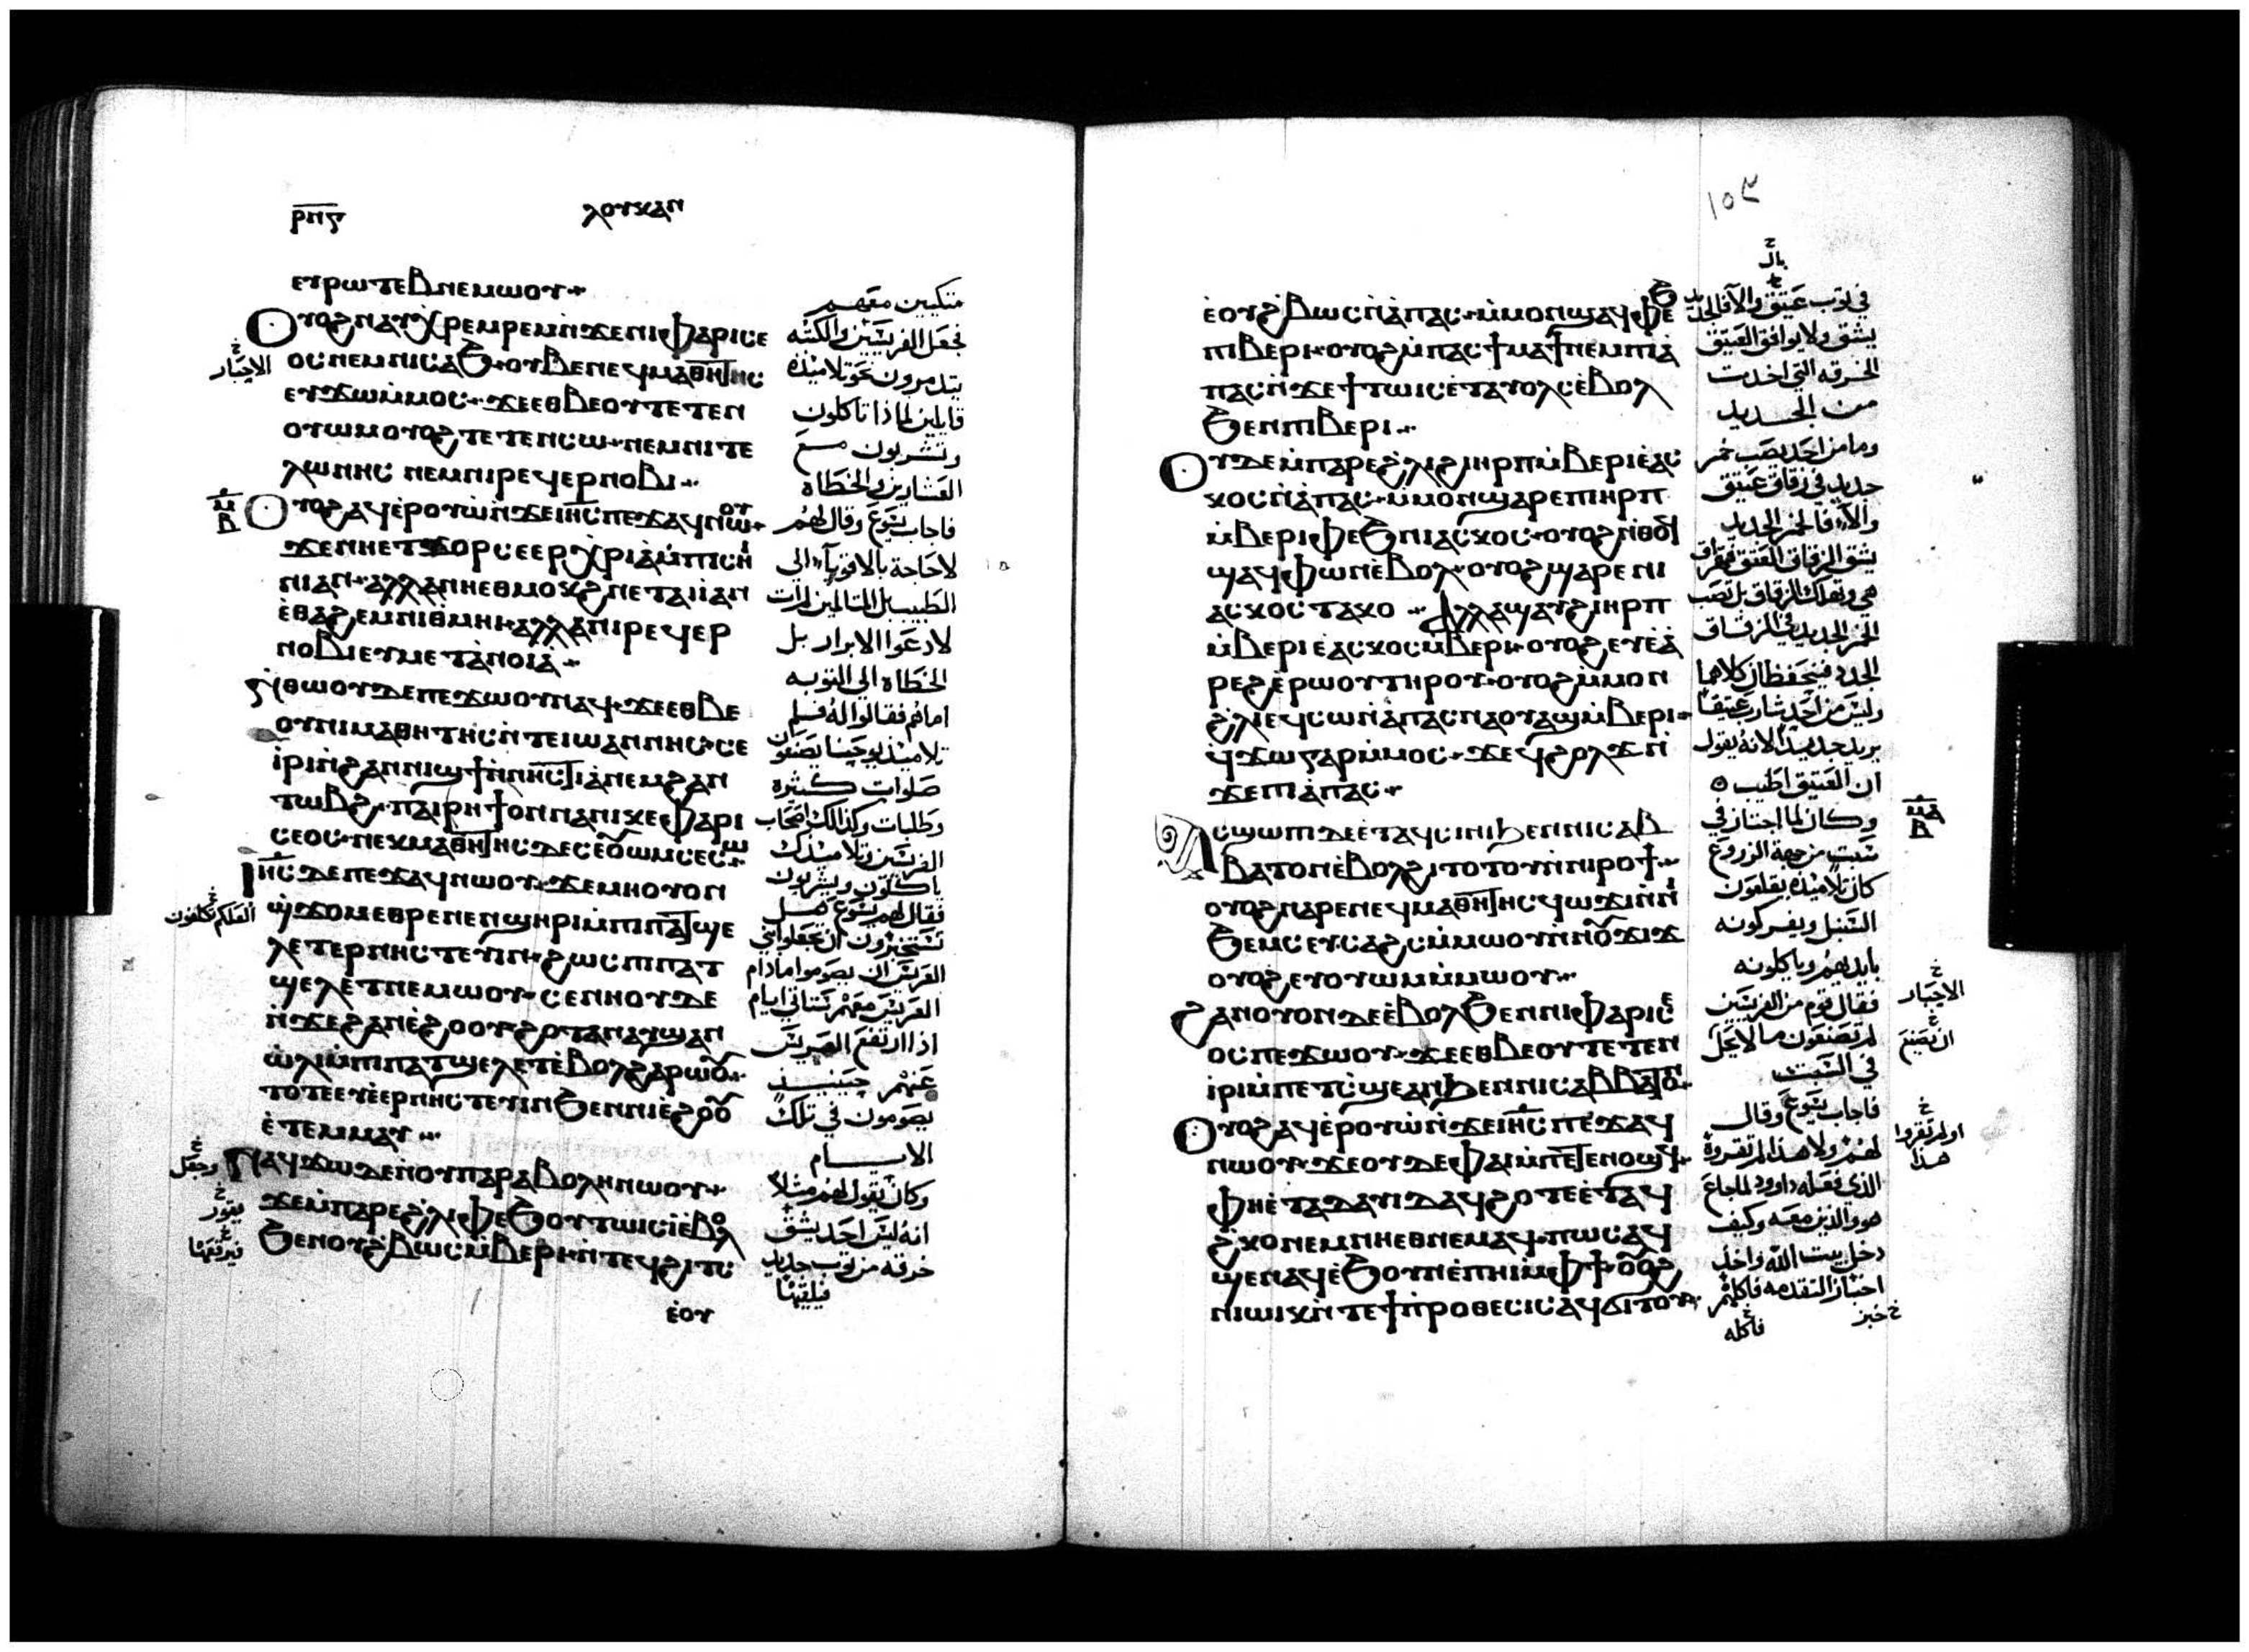 ⲣⲛⲋ
ⲗⲟⲩⲕⲁⲛ
ⲉⲩⲣⲱⲧⲉⲃ ⲛⲉⲙⲱⲟⲩ
ⲟⲩⲟϩ ⲛⲁⲩⲭⲣⲉⲙⲣⲉⲙ ⲛ̀ϫⲉ ⲛⲓⲫⲁⲣⲓⲥⲉ
ⲟⲥ ⲛⲉⲙ ⲛⲓⲥⲁϧ ⲟⲩⲃⲉ ⲛⲉϥⲙⲁⲑⲏⲧⲏⲥ
ⲉⲩϫⲱ ⲙ̀ⲙⲟⲥ ϫⲉ ⲉⲑⲃⲉ ⲟⲩ ⲧⲉⲧⲉⲛ
ⲟⲩⲱⲙ ⲟⲩⲟϩ ⲧⲉⲧⲉⲛⲥⲱ ⲛⲉⲙ ⲛⲓⲧⲉ
ⲗⲱⲛⲏⲥ ⲛⲉⲙ ⲛⲓⲣⲉϥⲉⲣⲛⲟⲃⲓ
ⲟⲩⲟϩ ⲁϥⲉ̀ⲣⲟⲩⲱ̀ ⲛ̀ϫⲉ ⲓⲏ̅ⲥ̅ ⲡⲉϫⲁϥ ⲛⲱⲟⲩ
ϫⲉ ⲛⲏ ⲉⲧϫⲟⲣ ⲥⲉⲉⲣⲭⲣⲓⲁ̀ ⲙ̀ⲡⲓⲥⲏ
ⲛⲓ ⲁⲛ ⲁⲗⲗⲁ ⲛⲏ ⲉⲑⲙⲟⲕϩ ⲛⲉⲧⲁⲓⲓ̀ ⲁⲛ
ⲉ̀ⲑⲁϩⲉⲙ ⲛⲓⲑ̀ⲙⲏⲓ ⲁⲗⲗⲁ ⲛⲓⲣⲉϥⲉⲣ
ⲛⲟⲃⲓ ⲉⲩⲙⲉⲧⲁ̀ⲛⲟⲓⲁ̀
ⲛ̀ⲑⲱⲟⲩ ⲇⲉ ⲡⲉϫⲱⲟⲩ ⲛⲁϥ ϫⲉ ⲉⲑⲃⲉ
ⲟⲩ ⲛⲓⲙⲁⲑⲏⲧⲏⲥ ⲛ̀ⲧⲉ ⲓⲱⲁⲛⲛⲏⲥ ⲥⲉ
ⲓ̀ⲣⲓ ⲛ̀ϩⲁⲛⲛⲓϣϯ ⲛ̀ⲛⲏⲥⲧⲓⲁ̀ ⲛⲉⲙ ϩⲁⲛ
ⲧⲱⲃϩ ⲡⲁⲓⲣⲏϯ ⲟⲛ ⲛⲁ ⲛⲓⲕⲉⲫⲁⲣⲓ
ⲥⲉⲟⲥ ⲛⲉⲕⲙⲁⲑⲏⲧⲏⲥ ⲇⲉ ⲥⲉⲟⲩⲱⲙ ⲥⲉⲥⲱ
ⲓⲏ̅ⲥ̅ ⲇⲉ ⲡⲉϫⲁϥ ⲛⲱⲟⲩ ϫⲉ ⲙⲏ ⲟⲩⲟⲛ
ϣ̀ϫⲟⲙ ⲉⲑⲣⲉ ⲛⲉⲛϣⲏⲣⲓ ⲙ̀ⲡⲓⲡⲁⲧϣⲉ
ⲗⲉⲧ ⲉⲣⲛⲏⲥⲧⲉⲩⲓⲛ ϩⲱⲥ ⲡⲓⲡⲁⲧ
ϣⲉⲗⲉⲧ ⲛⲉⲙⲱⲟⲩ ⲥⲉⲛⲏⲟⲩ ⲇⲉ
ⲛ̀ϫⲉ ϩⲁⲛⲉ̀ϩⲟⲟⲩ ϩⲟⲧⲁⲛ ⲁⲩϣⲁⲛ
ⲱ̀ⲗⲓ ⲙ̀ⲡⲓⲡⲁⲧϣⲉⲗⲉⲧ ⲉ̀ⲃⲟⲗ ϩⲁⲣⲱⲟⲩ
ⲧⲟⲧⲉ ⲉⲩⲉ̀ⲉⲣⲛⲏⲥⲧⲉⲩⲓⲛ ϧⲉⲛ ⲛⲓⲉ̀ϩⲟⲟⲩ
ⲉ̀ⲧⲉⲙⲙⲁⲩ
ⲛⲁϥϫⲱ ⲇⲉ ⲛ̀ⲟⲩⲡⲁⲣⲁⲃⲟⲗⲏ ⲛⲱⲟⲩ
ϫⲉ ⲙ̀ⲡⲁⲣⲉ ϩⲗⲓ ⲫⲉϧ ⲟⲩⲧⲱⲓⲥ ⲉ̀ⲃⲟⲗ
ϧⲉⲛ ⲟⲩϩ̀ⲃⲱⲥ ⲙ̀ⲃⲉⲣⲓ ⲛ̀ⲧⲉϥϩⲓⲧⲥ
ⲉ̀ⲟⲩ
متكيين معهم
فجعل الفريسيين والكتبه
يتدمرون نحو تلاميذه
قايلين لماذا تاكلون
وتشربون مع
العشارين والخطاه
فاجاب يسوع وقال لهم
لا حاجة بالاقويآء الى
الطبيب بل المتالمين لم ات
لادعوا الابرار بل
الخطاه الى التوبه
اما هم فقالوا له فسلم
تلاميذ يوحنا يصنعون
صلوات كثيره
وطلبات وكذالك اصحاب
الفريسيين وتلاميذك
ياكلون ويشربون
فقال لهم يسوع هل
العريس ان يصوموا مادام
العريس معهم ستاتي ايام
اذا ارتفع العريس
عنهم حينيذ
يصومون في تلك
الايام
وكان يقول لهم مثلا
انه ليس احد يشق
خرقه من ثوب جديد
فيلقيها
الاحبار
ⲙ̅ⲃ̅
وجعل
يقور
فيرقعها
١٥٤
ⲉ̀ⲟⲩϩ̀ⲃⲱⲥ ⲛ̀ⲁ̀ⲡⲁⲥ ⲙ̀ⲙⲟⲛ ϣⲁϥⲫⲉϧ
ⲡⲓⲃⲉⲣⲓ ⲟⲩⲟϩ ⲙ̀ⲡⲁⲥϯⲙⲁϯ ⲛⲉⲙ ⲡⲓⲁ̀
ⲡⲁⲥ ⲛ̀ϫⲉ ϯⲧⲱⲓⲥ ⲉ̀ⲧⲁⲩⲟⲗⲥ ⲉ̀ⲃⲟⲗ
ϧⲉⲛ ⲡⲓⲃⲉⲣⲓ
ⲟⲩⲇⲉ ⲙ̀ⲡⲁⲣⲉ ϩⲗⲓ ϩⲓ ⲏⲣⲡ ⲙ̀ⲃⲉⲣⲓ ⲉ̀ⲁⲥ
ⲕⲟⲥ ⲛ̀ⲁ̀ⲡⲁⲥ ⲙ̀ⲙⲟⲛ ϣⲁⲣⲉ ⲡⲓⲏⲣⲡ
ⲙ̀ⲃⲉⲣⲓ ⲫⲉϧ ⲛⲓⲁⲥⲕⲟⲥ ⲟⲩⲟϩ ⲛ̀ⲑⲟϥ
ϣⲁϥⲫⲱⲛ ⲉ̀ⲃⲟⲗ ⲟⲩⲟϩ ϣⲁⲣⲉ ⲛⲓ
ⲁⲥⲕⲟⲥ ⲧⲁⲕⲟ ⲁⲗⲗⲁ ϣⲁⲩϩⲓ ⲏⲣⲡ
ⲙ̀ⲃⲉⲣⲓ ⲉ̀ⲁⲥⲕⲟⲥ ⲙ̀ⲃⲉⲣⲓ ⲟⲩⲟϩ ⲉⲩⲉ̀ⲁ̀
ⲣⲉϩ ⲉ̀ⲣⲱⲟⲩ ⲧⲏⲣⲟⲩ ⲟⲩⲟϩ ⲙ̀ⲙⲟⲛ
ϩ̀ⲗⲓ ⲉϥⲥⲱ ⲛ̀ⲁ̀ⲡⲁⲥ ⲛⲁⲟⲩⲱϣ ⲙ̀ⲃⲉⲣⲓ
ϥ̀ϫⲱ ⲅⲁⲣ ⲙ̀ⲙⲟⲥ ϫⲉ ϥϩⲟⲗϫ ⲛ̀
ϫⲉ ⲡⲓⲁ̀ⲡⲁⲥ
ⲁⲥϣⲱⲡⲓ ⲇⲉ ⲉ̀ⲧⲁϥⲥⲓⲛⲓ ϧⲉⲛ ⲛⲓⲥⲁⲃ
ⲃⲁⲧⲟⲛ ⲉ̀ⲃⲟⲗ ϩⲓⲧⲟⲧⲟⲩ ⲛ̀ⲛⲓⲣⲟϯ
ⲟⲩⲟϩ ⲛⲁⲣⲉ ⲛⲉϥⲙⲁⲑⲏⲧⲏⲥ ϥⲱϫⲓ ⲛ̀ⲛⲓ
ϧⲉⲙⲥ ⲉⲩⲥⲁϩⲥ ⲙ̀ⲙⲱⲟⲩ ⲛ̀ⲛⲟⲩϫⲓϫ
ⲟⲩⲟϩ ⲉⲩⲟⲩⲱⲙ ⲙ̀ⲙⲱⲟⲩ
ϩⲁⲛⲟⲩⲟⲛ ⲇⲉ ⲉ̀ⲃⲟⲗ ϧⲉⲛ ⲛⲓⲫⲁⲣⲓⲥⲉ
ⲟⲥ ⲡⲉϫⲱⲟⲩ ϫⲉ ⲉⲑⲃⲉ ⲟⲩ ⲧⲉⲧⲉⲛ
ⲓ̀ⲣⲓ ⲙ̀ⲡⲉⲧⲥ̀ϣⲉ ⲁⲛ ϧⲉⲛ ⲛⲓⲥⲁⲃⲃⲁⲧⲟⲛ
ⲟⲩⲟϩ ⲁϥⲉ̀ⲣⲟⲩⲱ̀ ⲛ̀ϫⲉ ⲓⲏ̅ⲥ̅ ⲡⲉϫⲁϥ
ⲛⲱⲟⲩ ϫⲉ ⲟⲩⲇⲉ ⲫⲁⲓ ⲙ̀ⲡⲉⲧⲉⲛⲟϣϥ
ⲫⲏ ⲉ̀ⲧⲁ ⲇⲁⲩⲓⲇ ⲁⲓϥ ϩⲟⲧⲉ ⲉ̀ⲧⲁϥ
ϩ̀ⲕⲟ ⲛⲉⲙ ⲛⲏ ⲉⲑⲛⲉⲙⲁϥ ⲡⲱⲥ ⲁϥ
ϣⲉⲛⲁϥ ⲉ̀ϧⲟⲩⲛ ⲉ̀ⲡⲏⲓ ⲙ̀ⲫϯ ⲟⲩⲟϩ
ⲛⲓⲱⲓⲕ ⲛ̀ⲧⲉ ϯⲡ̀ⲣⲟⲑⲉⲥⲓⲥ ⲁϥϭⲓⲧⲟⲩ
في ثوب عتيق والآ فالجديد
يشق ولا يوافق العتيق
الخرقه التي اخدت
من الجديد
وما من احد يصب خمر
جديد في زقاق عتيق
والآ فالخمر الجديد
يشق الزقاق العتق فتهراق
هي وتهلك الزقاق بل تصب
الخمر الجديد في الزقاق
الجدد فيتحفظان كلاهما
وليس من احد شارب عتيقا
يريد جديدا لانه يقول
ان العتيق اطيب
وكان لما اجتاز في
سبت من جهة الزروع
كان تلاميذه يقلعون
السنبل ويفركونه
بايديهم وياكلونه
فقال قوم من الفريسيين
لم تصنعون ما لا يحل
في السبت
فاجاب يسوع وقال
لهم ولا هذا لم تقروه
الذي فعله داوود لما جاع
هو والذين معه وكيف
دخل بيت الله واخذ
احباز التقدمه فاكلهم
خبز
فاكله
ⲙ̅ⲁ̅
ⲃ̅
الاحبار
ان يصنع
اولم تقروا
هذا